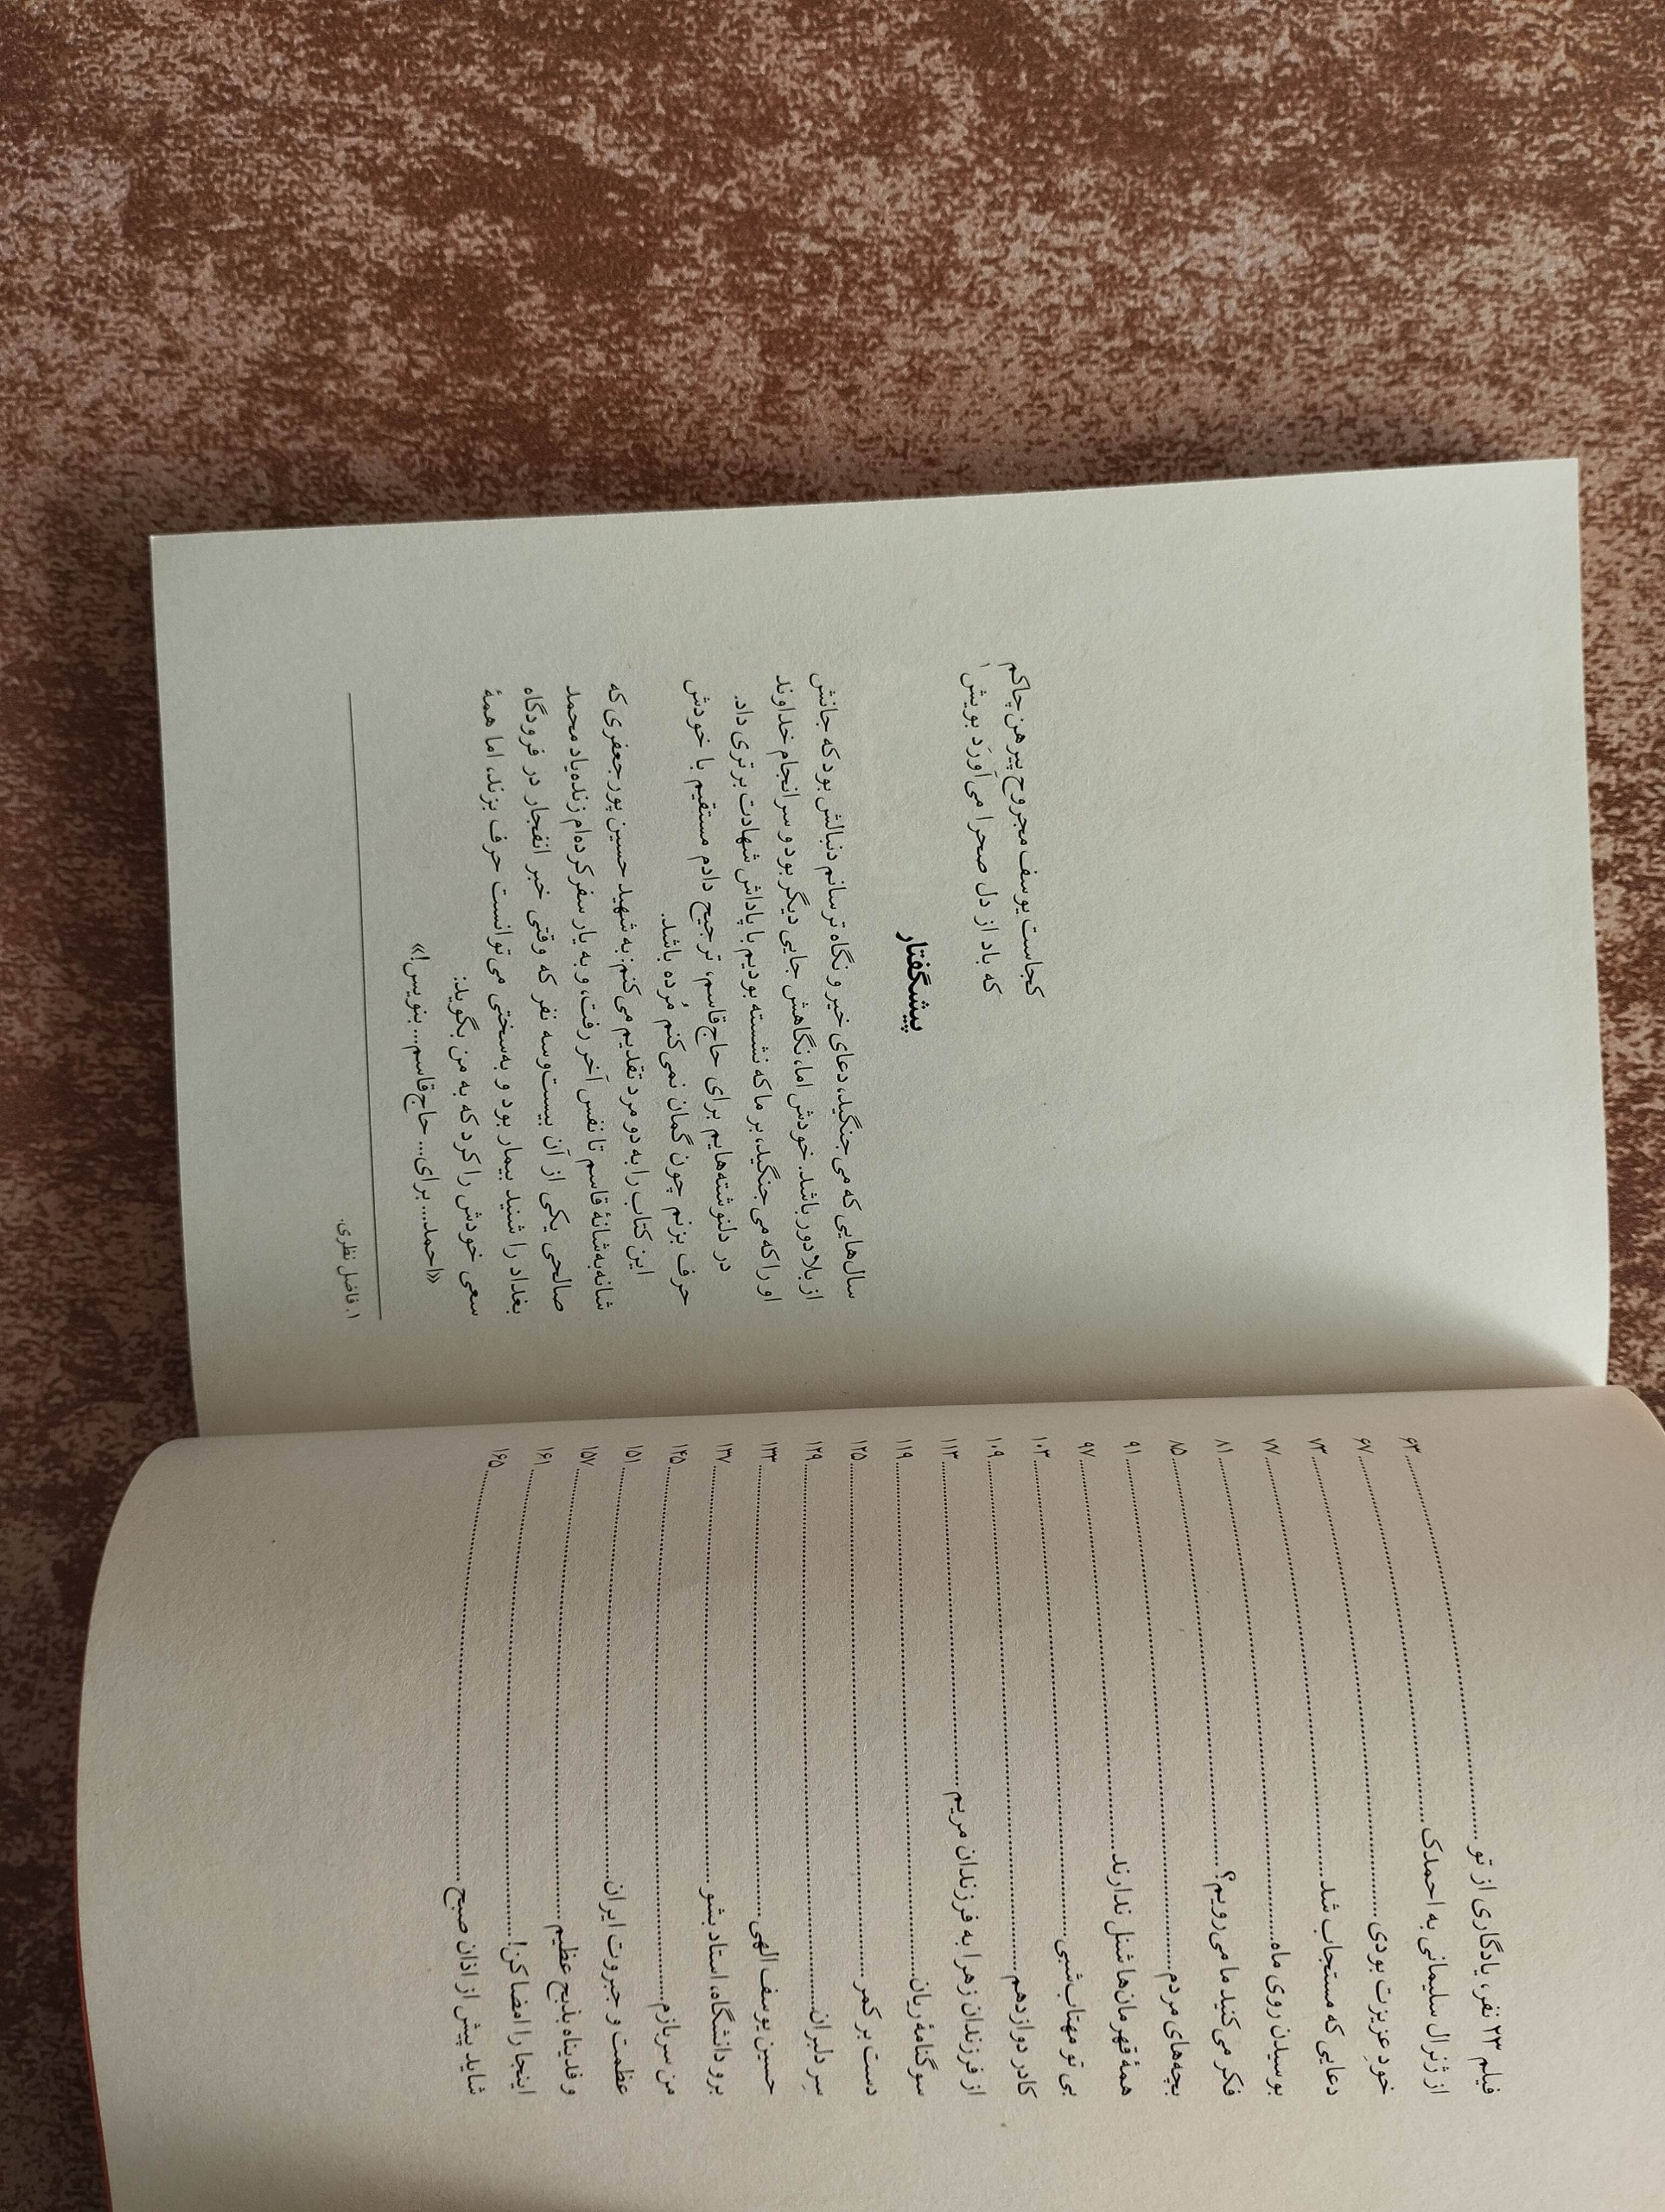 فیلم ۲۳ نفر، یادگاری از تو ........ ۶۳
از ژنرال سلیمانی به احمدک ........ ۶۷
خودِ عزیزت بودی ........ ۷۳
دعایی که مستجاب شد ........ ۷۷
بوسیدن روی ماه ........ ۸۱
فکر می‌کنید ما می‌رویم؟ ........ ۸۵
بچه‌های مردم ........ ۹۱
همهٔ قهرمان‌ها شنل ندارند ........ ۹۷
بی تو مهتاب شبی ........ ۱۰۳
کادر دوازدهم ........ ۱۰۹
از فرزندان زهرا به فرزندان مریم ........ ۱۱۳
سوگنامهٔ ریان ........ ۱۱۹
دست بر کمر ........ ۱۲۵
سِر دلبران ........ ۱۲۹
حسین یوسف الهی ........ ۱۳۳
برو دانشگاه، استاد بشو ........ ۱۳۷
من سربازم ........ ۱۴۵
عظمت و جبروت ایران ........ ۱۵۱
و فدیناه بذبح عظیم ........ ۱۵۷
اینجا را امضا کن! ........ ۱۶۱
شاید پیش از اذان صبح ........ ۱۶۵
کجاست یوسف مجروح پیرهن چاکم
که باد از دل صحرا می‌آوَرَد بویش۱
پیشگفتار
سال‌هایی که می‌جنگید، دعای خیر و نگاه ترسانم دنبالش بود که جانش
از بلا دور باشد. خودش اما، نگاهش جایی دیگر بود و سرانجام خداوند
او را که می‌جنگید، بر ما که نشسته بودیم با پاداش شهادت برتری داد.
در دلنوشته‌هایم برای حاج‌قاسم، ترجیح دادم مستقیم با خودش
حرف بزنم چون گمان نمی‌کنم مُرده باشد.
این کتاب را به دو مرد تقدیم می‌کنم: به شهید حسین پورجعفری که
شانه‌به‌شانهٔ قاسم تا نفس آخر رفت، و به یار سفر کرده‌ام زنده‌یاد محمد
صالحی یکی از آن بیست‌وسه نفر که وقتی خبر انفجار در فرودگاه
بغداد را شنید بیمار بود و به‌سختی می‌توانست حرف بزند، اما همهٔ
سعی خودش را کرد که به من بگوید:
«احمد... برای... حاج‌قاسم... بنویس!»
۱. فاضل نظری.